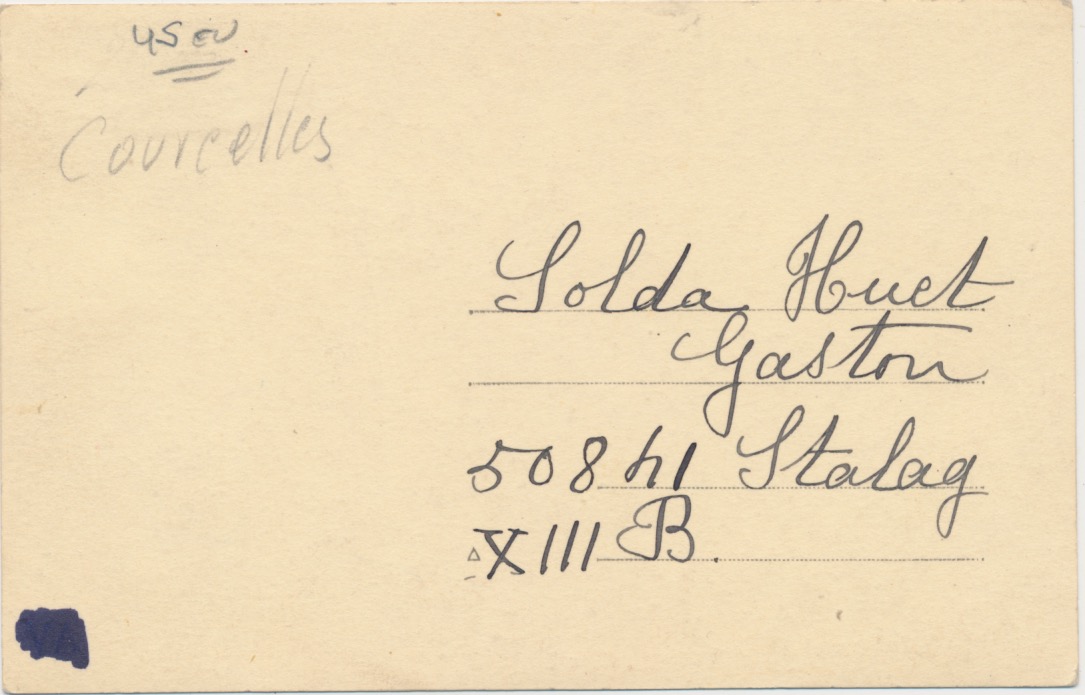 45 EU
Courcelles
Solda Huet
Gaston
50841 Stalag
XIII B.